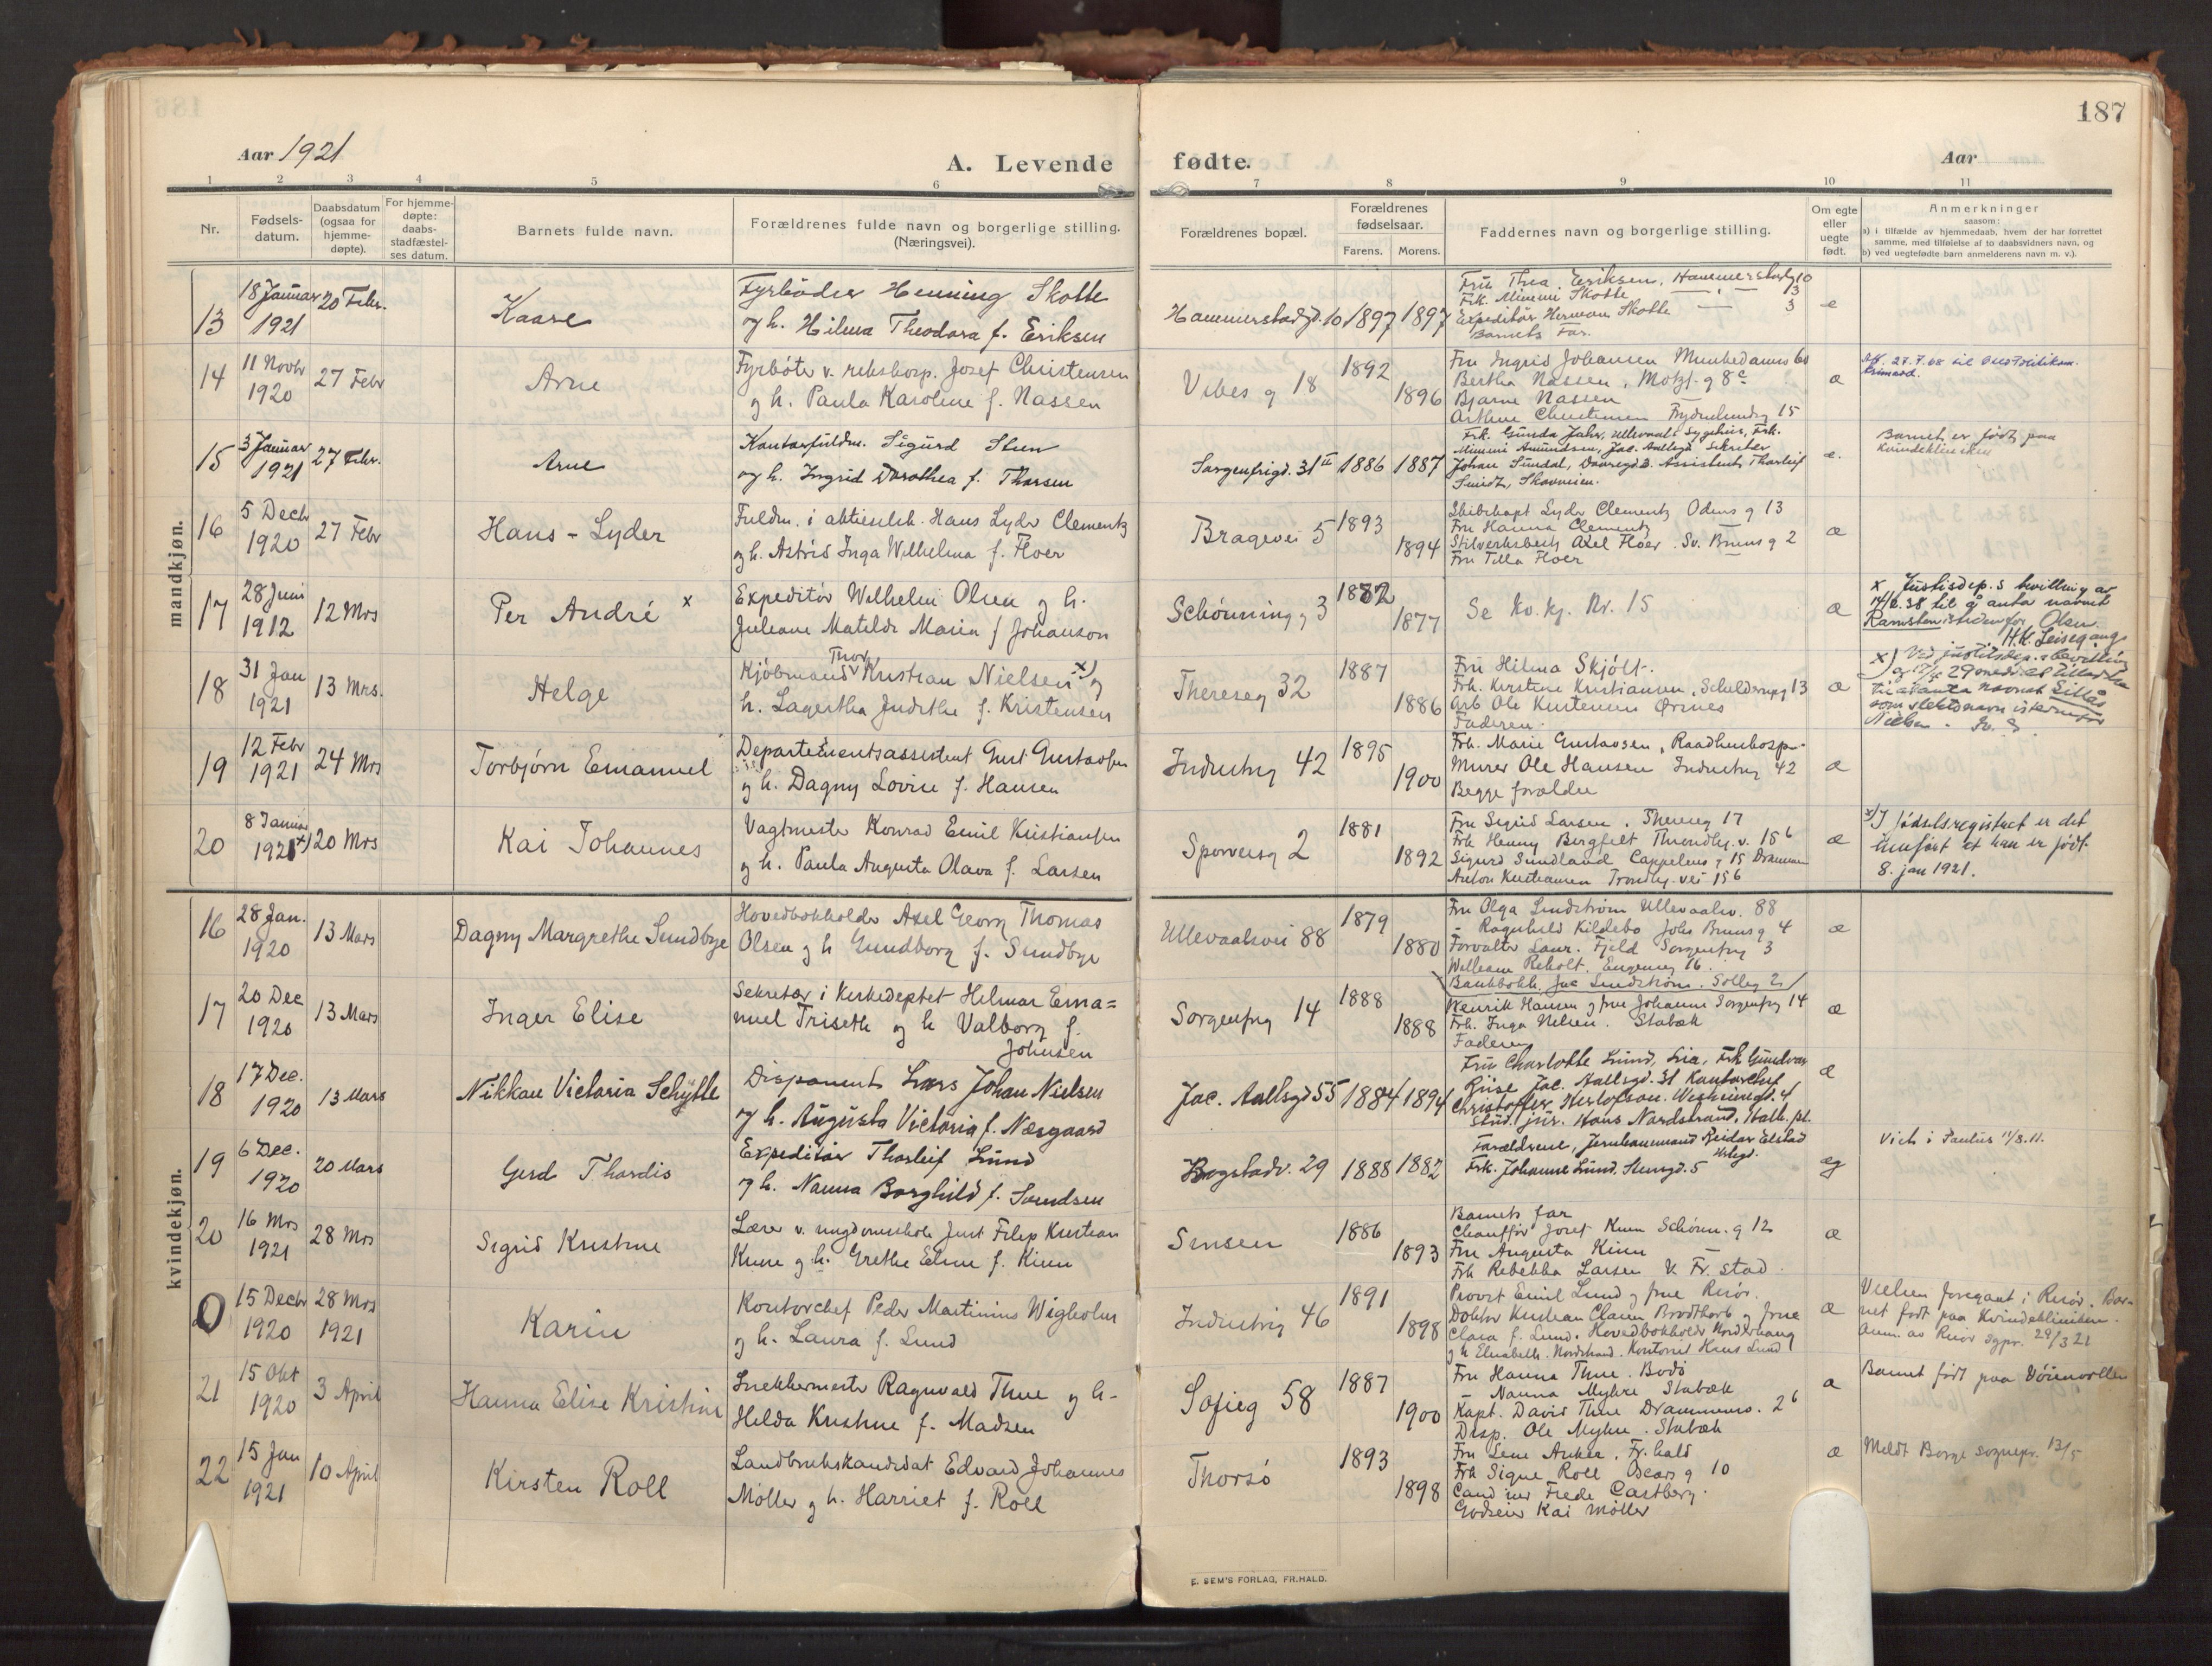 187
Aar 1921
A. Levende fødte.
Aar
1 2 3 4 5 6 7 8 9 10 11
Nr.
Fødsels-
datum.
Daabsdatum
(ogsaa for
hjemme-
døpte).
For hjemme-
døpte:
daabs-
stadfæstel-
ses datum.
Barnets fulde navn.
Forældrenes fulde navn og borgerlige stilling.
(Næringsvei).
Forældrenes bopæl.
Forældrenes
fødselsaar.
Farens. Morens.
Faddernes navn og borgerlige stilling.
Om egte
eller
uegte
født.
Anmerkninger
saasom:
a) i tilfælde av hjemmedaab, hvem der har forrettet
samme, med tilføielse af to daabsvidners navn, og
b) ved uegtefødte barn anmelderens navn m. v.).
mandkjøn.
13
18 Januar
1921
20 Febr.
Kaare
Fyrbøder Henning Skotte
og h. Hilma Theodora f. Eriksen
Hammerstadgd. 10
1897
1897
Fru Thea Eriksen, Hammerstadg 10
Frk. Mimmi Skotte — 3
Expeditør Herman Skotte — 3
Barnets Far.
e
14
11 Novbr
1920
27 Febr
Arne
Fyrbøter v. rikshosp. Josef Christensen
og h. Paula Karoline f. Nassen
Vibes g 18
1892
1896
Fru Ingrid Johansen Munkedamsv 60
Bertha Nassen, Motzf. g 8c
Bjarne Nassen
Arthur Christensen Frydenlundg 15
æ
15
3 Januar
1921
27 Febr.
Arne
Kontorfuldm. Sigurd Steen
og h. Ingrid Dorothea f. Thorsen
Sorgenfrigd. 31 II
1886
1887
Frk. Gunda Jahr, Ullevaals Sygehus, Frk.
Mimmi Amundsen, Jac. Aallsgd Sekretær
Johan Sundal, Daasegd 2. Assistent Tharleif
Smidt, Skovveien.
e.
Barnet er født paa
Kvindeklinikken
16
5 Decbr
1920
27 Febr
Hans - Lyder
Fuldm. i aktieselsk. Hans Lyder Clementz
og h. Astrid Inga Wilhelmine f. Floer
Bragevei 5
1893
1894
Skibskapt Lyder Clementz Odens g 13
Fru Hanna Clementz
Axel Floer. Sv. Bruns g 2
Fru Tilla Floer
æ
17
28 Juni
1912
12 Mrs
Per André x
Expeditør Wilhelm Olsen og h.
Juliane Matilde Maria f Johanson
Schønning g 3
1872
1877
Se Ko. kj. Nr. 15
æ
x Justisdep.s bevilling av
14/6.38 til å anta navnet
Ramsten istedenfor Olsen.
H.K. Leisegang
18
31 Jan
1921
13 Mrs.
Helge
Thor
Kjøbmand Kristian Nielsen x) og
h. Lagertha Judithe f. Kristensen
Thereseg 32
1887
1886
Fru Hilma Skjølt.
Frk. Kirstine Kristiansen, Schulderupg 13
Arb Ole Kristensen Ørnes
Faderen.
æ
x) Ved justisdep.s bevilling
ag 17/4 29 medd. at tillades
til at anta navnet Lillås
som slektsnavn istedenfor
Nielsen
19
12 Febr
1921
24 Mrs
Torbjørn Emanuel
Departementsassistent Gust Gustavsen
og h. Dagny Lovise f. Hansen
Industrig 42
1895
1900
Frk. Marie Gustavsen, Raadhushosp.
Murer Ole Hansen Industrig 42
Begge forældre
æ
20
8 Januar
1921 x)
20 Mrs
Kai Johannes
Vagtmester Konrad Emil Kristiansen
og h. Paula Augusta Olava f. Larsen
Sporveisg 2
1881
1892
Fru Sigrid Larsen. Thereseg 17
Frk Henny Bergfelt Throndhj. v. 156
Sigurd Sundland Cappelens g 15 Drammen
Anton Kristiansen Trondhj. vei 156
æ
x) I fødselsregistret er det
innført at han er født
8. jan 1921.
kvindekjøn.
16
28 Jan.
1920
13 Mars
Dagny Margrethe Sundbye
Hovedbokholder Axel Georg Thomas
Olsen og h Gundborg f. Sundbye
Ullevaalsvei 88
1879
1880
Fru Olga Lindstrøm Ullevaalsv. 88
- Ragnhild Kildebo Johs Bruns g 4
Forvalter Laur. Fjeld Sorgenfrig 3
William Reholt. Eugenieg 16.
Bankbokh. Jac Lindstrøm. Solleg 2
æ
17
20 Dec
1920
13 Mars
Inger Elise
Sekretær i Kirkedeptet Helmar Ema=
nuel Triseth og h Valborg f.
Johnsen
Sorgenfrig 14
1888
1888
Henrik Hansen og frue Johanne Sorgenfrig 14
Frk. Inga Nelsen. Stabæk
Faderen
æ
18
17 Dec.
1920
13 Mars
Nikkan Victoria Schytte
Disponent Lars Johan Nielsen
og h. Augusta Victoria f. Næsgaard
Jac. Aallsgd 55
1884
1894
Fru Charlotte Lund, Frk Gundvar
Riise Jac. Aallsgd. 31 Kontorchef
Christoffer Herlofson. Westheimgd. 4
Stud. jur. Hans Nordstrand, Halb. pl.
æ
19
6 Dec.
1920
20 Mars
Gerd Thordis
Expeditør Thorleif Lund
og h. Nanna Borghild f. Svendsen
Bogstadv. 29
1888
1882
Forældrene, Jernbanemand Reidar Elstad
Frk. Johanne Lund. Stensgd. 5
æg
Viet i Paulus 11/8.11.
20
16 Mrs
1921
28 Mrs
Sigrid Kristine
Lærer v. ungdomsskole Just Filip Kristian
Kinn og h. Grethe Eline f. Kinn
Sinsen
1886
1893
Barnets far
Chauffør Josef Kinn Schønn. g 12
Fru Augusta Kinn
Frk Rebekka Larsen v. Fr. stad.
æ
0
15 Decbr
1920
28 Mrs
1921
Karin
Kontorchef Peder Martinius Wigholm
og h. Laura f. Lund
Industrig 46
1891
1898
Provst Emil Lund og frue Risør.
Doktor Kristian Claun Brodtkorb og frue
Clara f. Lund. Hovedbokholder Nordstrand
og h Elisabeth. Nordstrand. Kontorist Hans Lund
æ
Vielsen foregaat i Risør. Bar-
net født paa Kvindeklinikken.
Anm. av Risør sgpr. 29/3 21
21
15 Okt
1920
3 April
Hanna Elise Kristine
Snekkermester Ragnvald Thue og h.
Hilda Kristine f. Madsen
Sofieg 58
1887
1900
Fru Hanna Thue. Bodø
- Nanna Myhre Stabæk
Kapt. David Thue Drammensv. 26
Disp. Ole Myhre. Stabæk
æ
Barnet født paa Vøienvolden
22
15 Jan
1921
10 April
Kirsten Roll
Landbrukskandidat Edvard Johannes
Møller og h. Harriet f. Roll
Thorsø
1893
1898
Fru Lene Anker. Fr. hald
Frk Signe Roll Oscars g 10
Cand jur Frede Castberg.
Godseier Kai Møller
æ
Meldt Borge sognepr. 13/5
E. SEM'S FORLAG, FR.HALD.